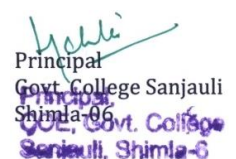 Principal
Govt. College Sanjauli
Shimla-06
Principal,
COE, Govt. College
Sanjauli, Shimla-6